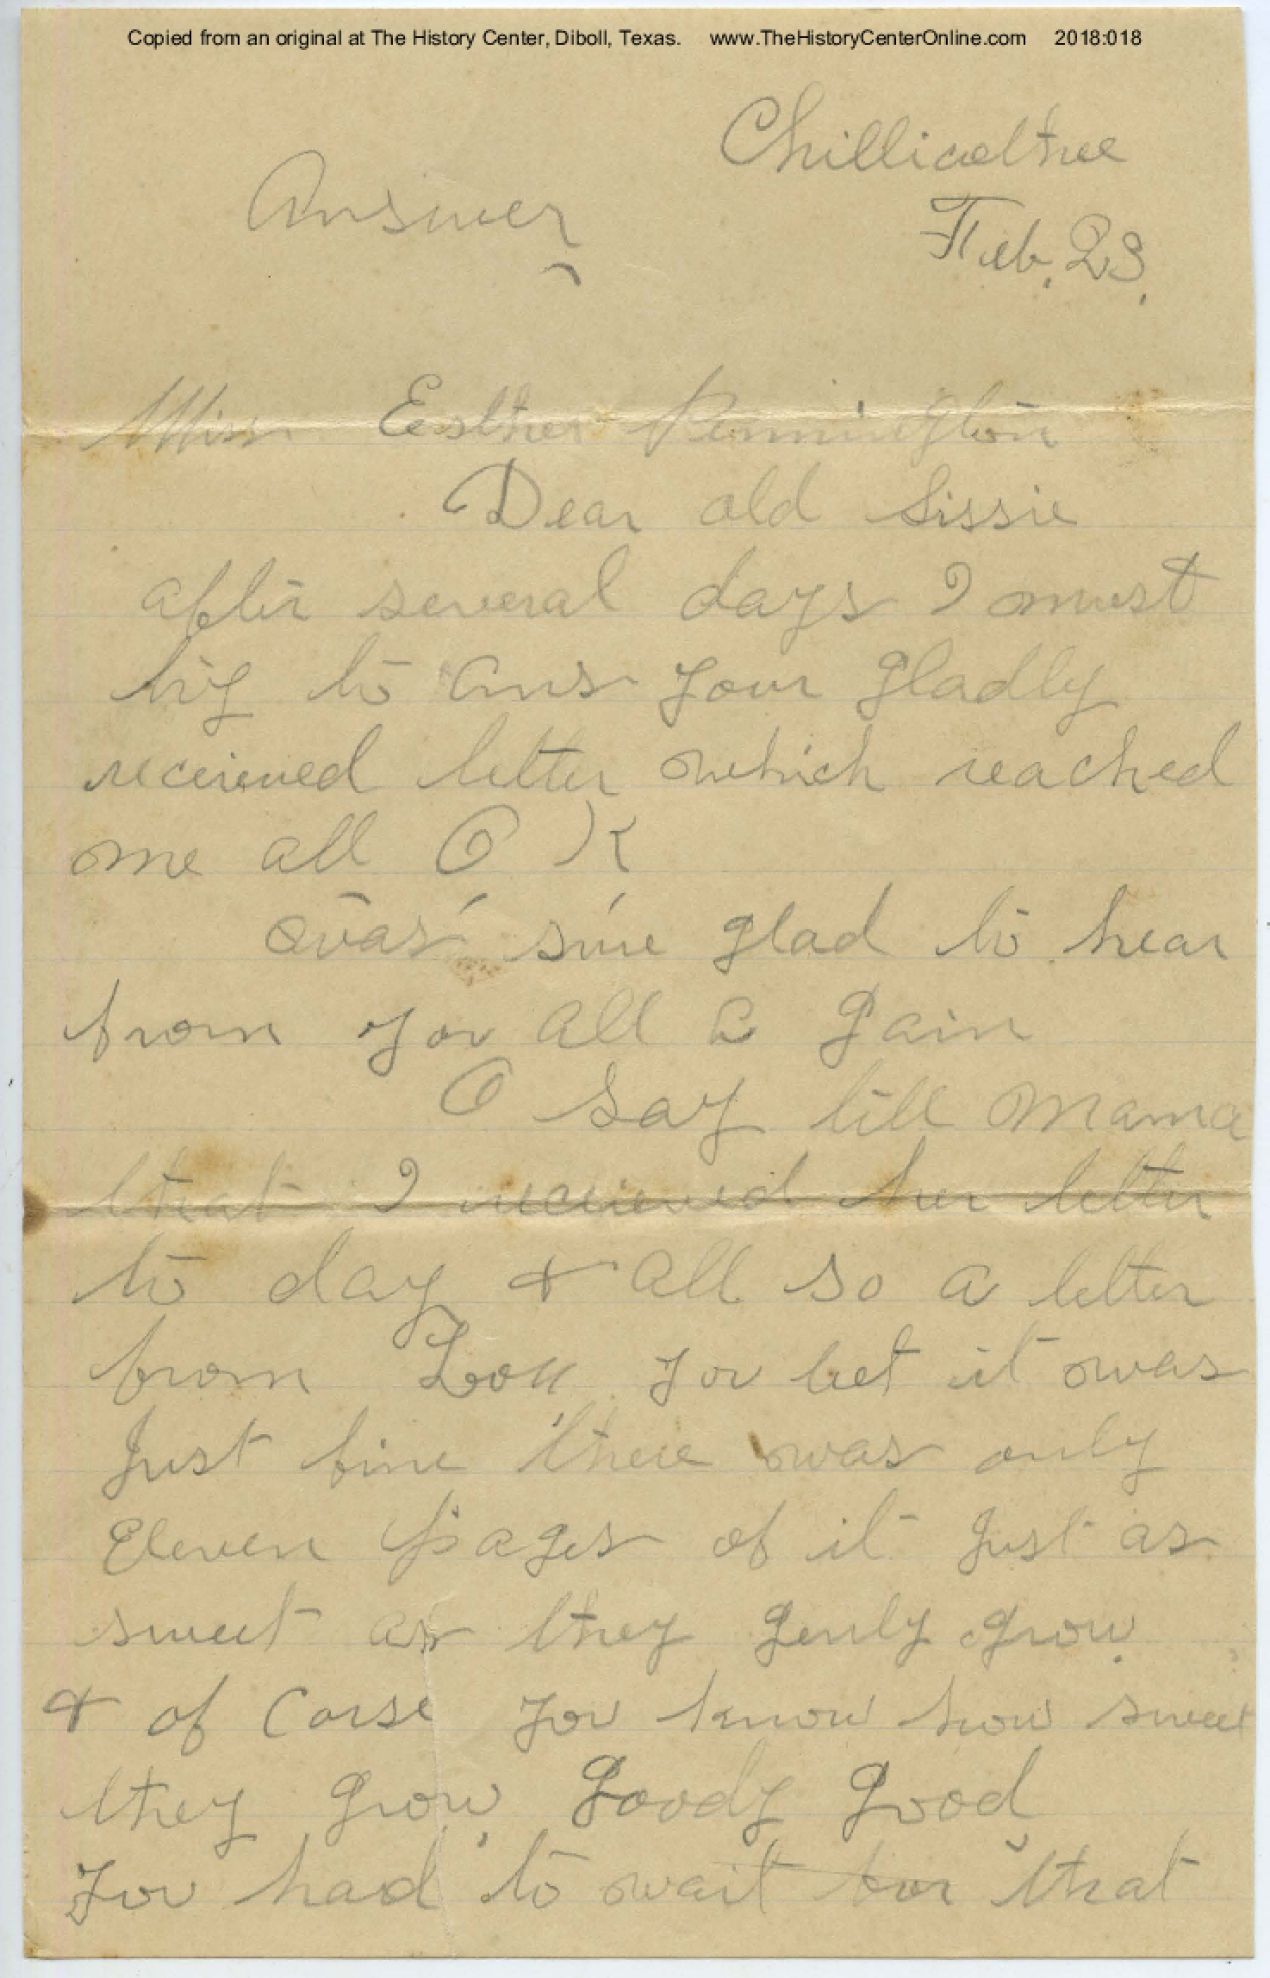 Copied from an original at The History Center, Diboll, Texas. www.TheHistoryCenterOnline.com 2018:018
Chillicolthee
Answer
Feb. 23.
Miss Esther Pennington
Dear old Sissie
after several days I must
try to ans your gladly
recieved letter which reached
me all O K
was sure glad to hear
from you all a gain
O say tell Mama
that I recieved her letter
to day & all so a letter
from Lou you bet it was
Just fine there was only
Eleven pages of it Just as
sweet as they genly grow
& of Corse you know how sweet
they grow, Goody Good
you had to wait for that